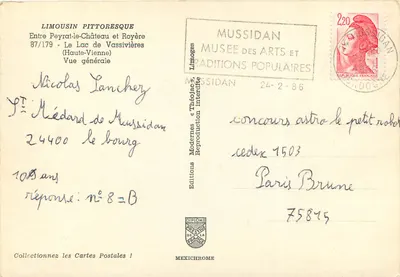 LIMOUSIN PITTORESQUE
Entre Peyrat-le-Château et Royère
87/179 - Le Lac de Vassivières
(Haute-Vienne)
Vue générale
Nicolas Sanchez
St Médard de Mussidan
24400 le bourg
10 ans
réponse: n° 8 = B
Collectionnez les Cartes Postales !
Editions Modernes « Théojac », Limoges
Reproduction interdite
MEXICHROME
MUSSIDAN
MUSEE des ARTS et
TRADITIONS POPULAIRES
MUSSIDAN
24-2-88
2,20
concours astro le petit robot
cedex 1503
Paris Brune
75815